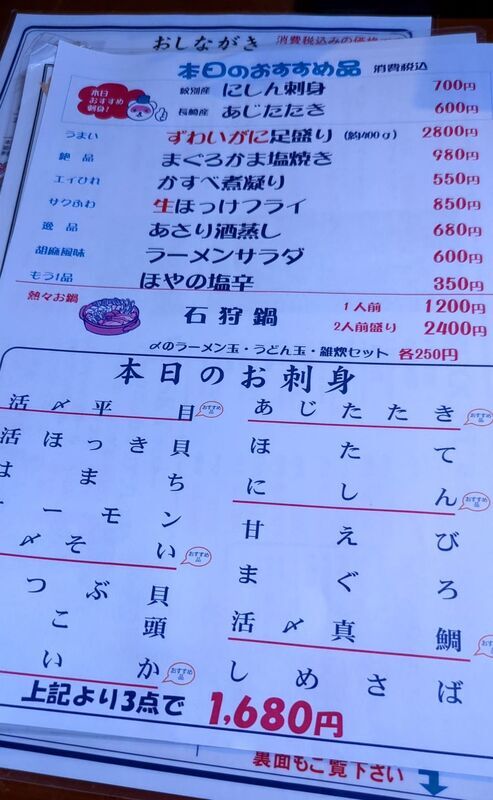 おしながき 消費税込みの価格
本日のおすすめ品 消費税込
本日おすすめ刺身! 紋別産 にしん刺身 700円
長崎産 あじたたき 600円
うまい ずわいがに足盛り (約400g) 2800円
絶品 まぐろかま塩焼き 980円
エイひれ かすべ煮凝り 550円
サクふわ 生ほっけフライ 850円
逸品 あさり酒蒸し 680円
胡麻風味 ラーメンサラダ 600円
もう!品 ほやの塩辛 350円
熱々お鍋 石狩鍋 1人前 1200円
2人前盛り 2400円
〆のラーメン玉・うどん玉・雑炊セット 各250円
本日のお刺身
活〆平目 おすすめ品 あじたたき おすすめ品
活ほっき貝 ほたて
はまち にしん おすすめ品
ーモン 甘えび
〆そい おすすめ品 まぐろ
つぶ貝 活〆真鯛 おすすめ
こ頭 しめさば
いか おすすめ品
上記より3点で 1,680円
裏面もご覧下さい